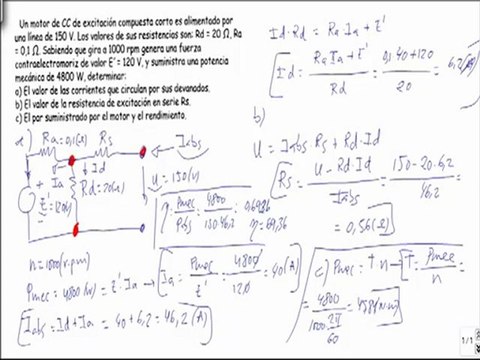 Un motor de CC de excitación compuesta corto es alimentado por
una línea de 150 V. Los valores de sus resistencias son: Rd = 20 Ω, Ra
= 0,1 Ω. Sabiendo que gira a 1000 rpm genera una fuerza
contraelectromotriz de valor E' = 120 V, y suministra una potencia
mecánica de 4800 W, determinar:
a) El valor de las corrientes que circulan por sus devanados.
b) El valor de la resistencia de excitación en serie Rs.
c) El par suministrado por el motor y el rendimiento.
a)
Ra=0,1(Ω) Rs
Iabs
Id
+ Ia Rd=20(Ω)
E'=120(V)
U=150(V)
n=1000(r.p.m)
Pmec=4800(W)=E'·Ia → Ia=Pmec/E'=4800/120=40(A)
Iabs=Id+Ia=40+6,2=46,2(A)
η=Pmec/Pabs=4800/150·46,2=0,6936
η=69,36
Id·Rd=Ra Ia+E'
Id=Ra Ia+E'/Rd=0,1·40+120/20=6,2(A)
b)
U=Iabs Rs+Rd·Id
Rs=U-Rd Id/Iabs=150-20·6,2/46,2=
=0,56(Ω)
c) Pmec=T·n → T=Pmec/n=
=4800/1000·2π/60=45,84(N·m)
1/1